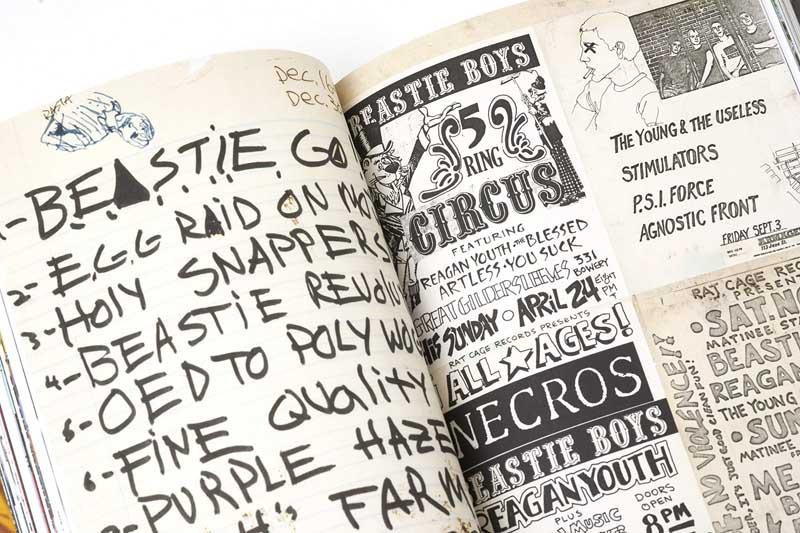 Dec. 16
Dec. 3
1-BEASTIE GO
2- E.G.G RAID ON MO
3-HOLY SNAPPERS
4-BEASTIE REVOLU
5-OED TO POLYWO
6-FINE QUALITY
PURPLE HAZE
FARM
BEASTIE BOYS
5
RING
CIRCUS
FEATURING
REAGAN YOUTH•THE BLESSED
ARTLESS•YOU SUCK
GREAT GILDERSLEEVES 331 BOWERY
THIS SUNDAY • APRIL 24 EIGHT PM
RAT CAGE RECORDS PRESENTS
ALL AGES!
NECROS
BEASTIE BOYS
REAGAN YOUTH
PLUS
MUSIC
DOORS
OPEN
8PM
THE YOUNG & THE USELESS
STIMULATORS
P.S.I. FORCE
AGNOSTIC FRONT
FRIDAY SEPT. 3
RAT CAGE REC
PRESEN
•SAT. NO
MATINEE
BEASTI
REAGAN
THE YOUNG
•SUN
MATINEE
ME
BEA
NO VIOLENCE!!
JUST GOOD CLEAN FUN!